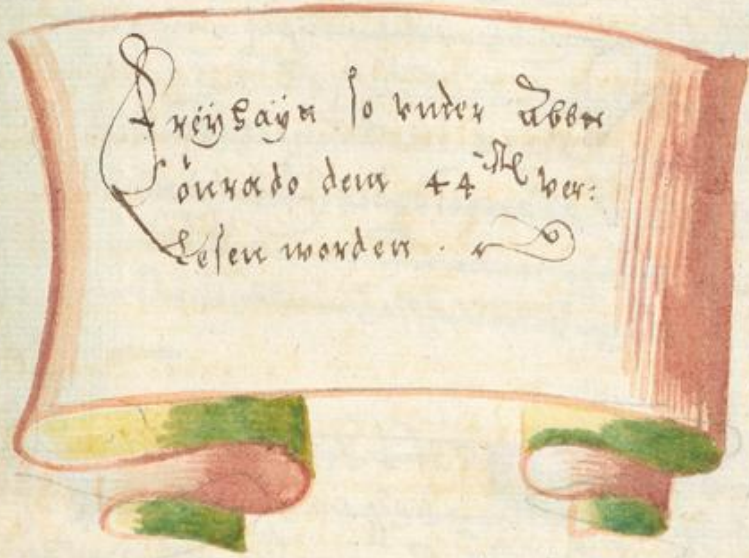 Freÿhaÿn so vnter Abbte
Conrado dem 44ten ver:
lesen worden .